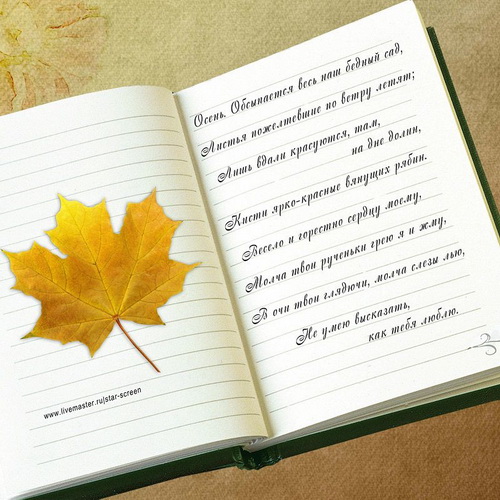 www.livemaster.ru|star-screen
Осень. Обсыпается весь наш бедный сад,
Листья пожелтевшие по ветру летят;
Лишь вдали красуются, там,
на дне долин,
Кисти ярко-красные вянущих рябин.
Весело и горестно сердцу моему,
Молча твои рученьки грею я и жму,
В очи твои глядючи, молча слезы лью,
Не умею высказать,
как тебя люблю.